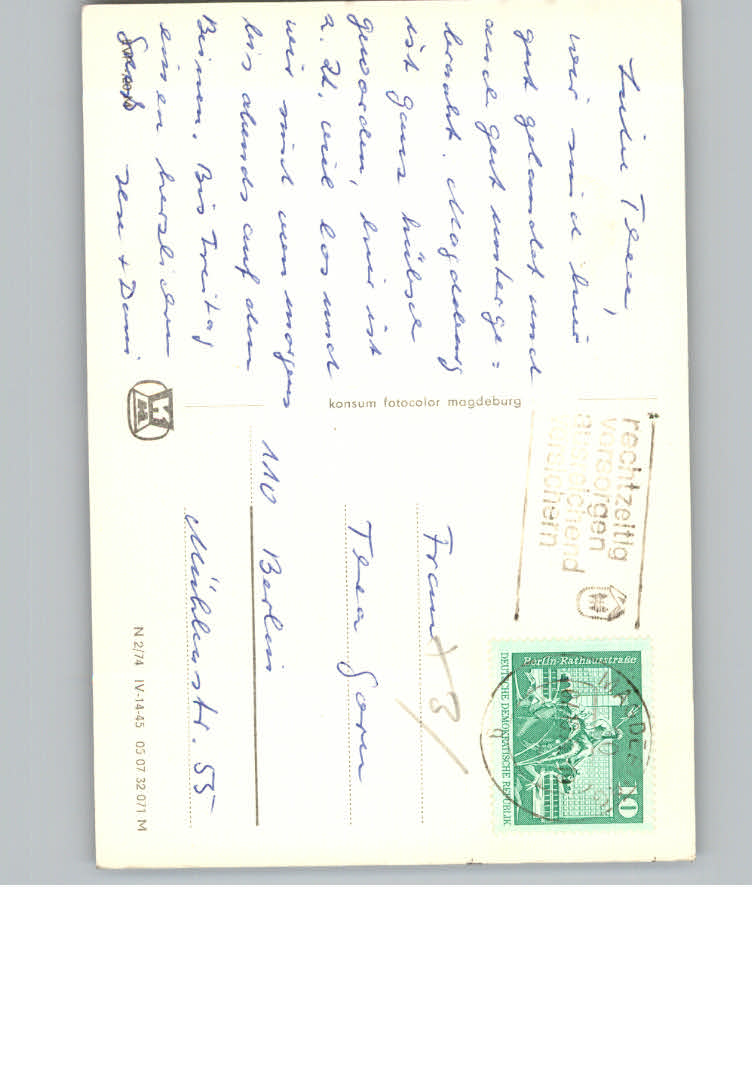 Liebe Thea,
wir sind hier
gut gelandet und
auch gut unterge=
bracht. Magdeburg
ist ganz hübsch
geworden, hier ist
z. Zt. viel los und
wir sind von morgens
bis abends auf den
Beinen. Bis Freitag
einen herzlichen
Gruß
konsum fotocolor magdeburg
rechtzeitig
vorsorgen
ausreichend
versichern
Berlin-Rathausstraße
DEUTSCHE DEMOKRATISCHE REPUBLIK
10
Frau
Thea
110 Berlin
Mühlenstr. 55
N 2/74 IV-14-45 05 07 32 071 M